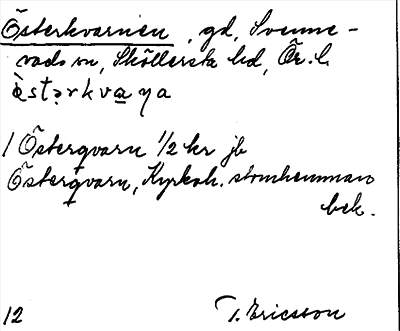 Österkvarnen, gd, Svenne-
vads sn, Sköllersta hd, Ör. l.
östərkvaṇa
1 Österqvarn 1/2 kr jb
Österqvarn, Kyrkoh. stomhemman
bek.
12 T. Ericsson